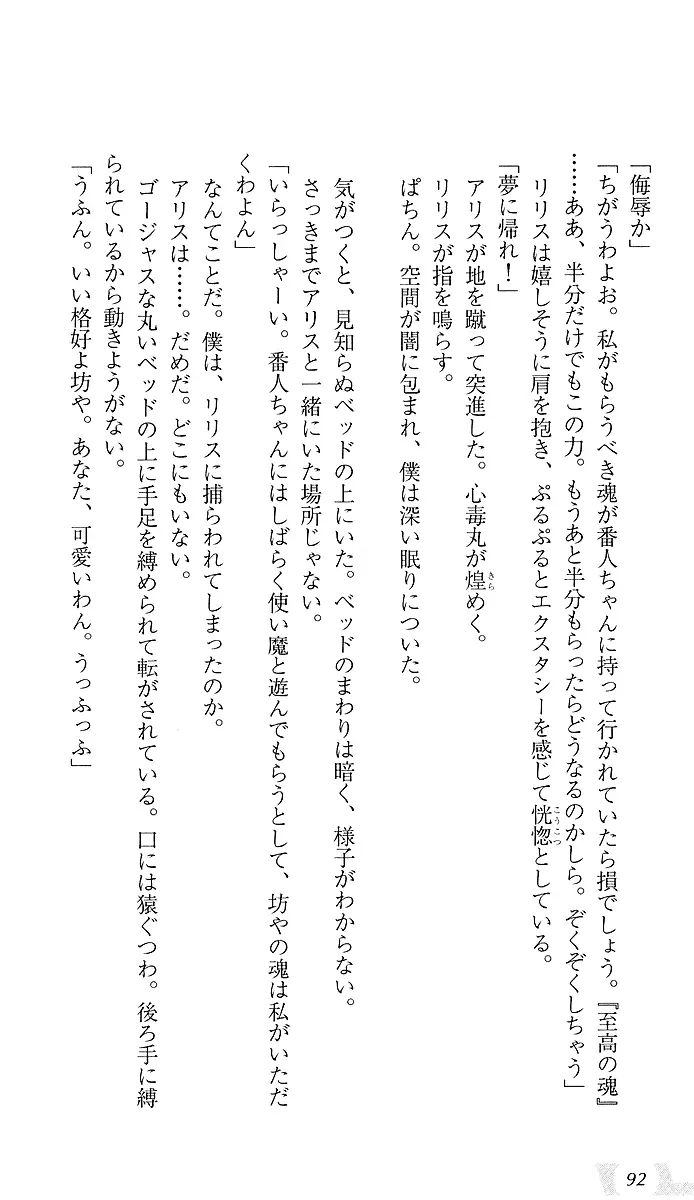 「侮辱か」
「ちがうわよお。私がもらうべき魂が番人ちゃんに持って行かれていたら損でしょう。『至高の魂』
……ああ、半分だけでもこの力。もうあと半分もらったらどうなるのかしら。ぞくぞくしちゃう」
リリスは嬉しそうに肩を抱き、ぷるぷるとエクスタシーを感じて恍惚としている。
「夢に帰れ！」
アリスが地を蹴って突進した。心毒丸が煌めく。
リリスが指を鳴らす。
ぱちん。空間が闇に包まれ、僕は深い眠りについた。
気がつくと、見知らぬベッドの上にいた。ベッドのまわりは暗く、様子がわからない。
さっきまでアリスと一緒にいた場所じゃない。
「いらっしゃーい。番人ちゃんにはしばらく使い魔と遊んでもらうとして、坊やの魂は私がいただ
くわよん」
なんてことだ。僕は、リリスに捕らわれてしまったのか。
アリスは……。だめだ。どこにもいない。
ゴージャスな丸いベッドの上に手足を縛められて転がされている。口には猿ぐつわ。後ろ手に縛
られているから動きようがない。
「うふん。いい格好よ坊や。あなた、可愛いわん。うっふっふ」
92